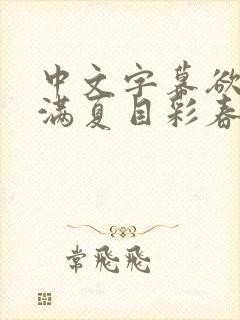 中文字幕欲
满夏目彩春
常飛飛